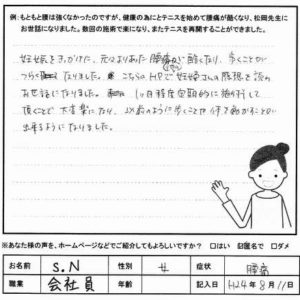 例:もともと腰は強くなかったのですが、健康の為にとテニスを始めて腰痛が酷くなり、松岡先生に
お世話になりました。数回の施術で楽になり、またテニスを再開することができました。
妊娠をきっかけに、元々よりあった腰痛が酷くなり、歩くことが
つらくなりました。こちらのHPで妊婦さんの
お世話になりました。1ヶ月程度定期的に施術して
頂くことで大変楽になり、以前のように歩くことや
出来るようになりました。
※あなた様の声を、ホームページなどでご紹介してもよろしいですか? □はい ☑匿名で □ダメ
お名前 S.N 性別 女 症状 腰痛
職業 会社員 記入日 H24年8月11日